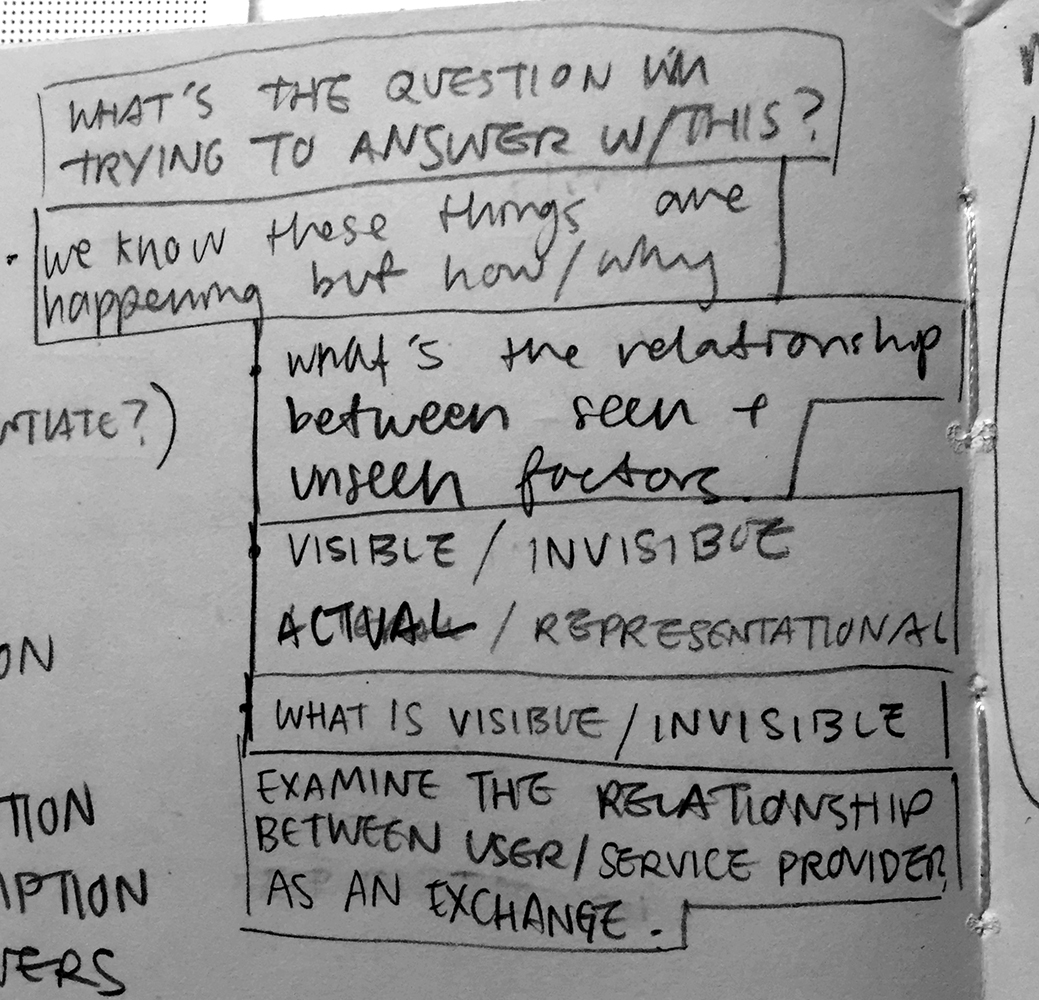 WHAT'S THE QUESTION I'M
TRYING TO ANSWER W/THIS?
we know these things are
happening but how/why
what's the relationship
between seen +
unseen factors.
VISIBLE / INVISIBLE
ACTUAL / REPRESENTATIONAL
WHAT IS VISIBLE / INVISIBLE
EXAMINE THE RELATIONSHIP
BETWEEN USER/SERVICE PROVIDER
AS AN EXCHANGE.
NTIATE?)
ON
TION
PTION
VERS